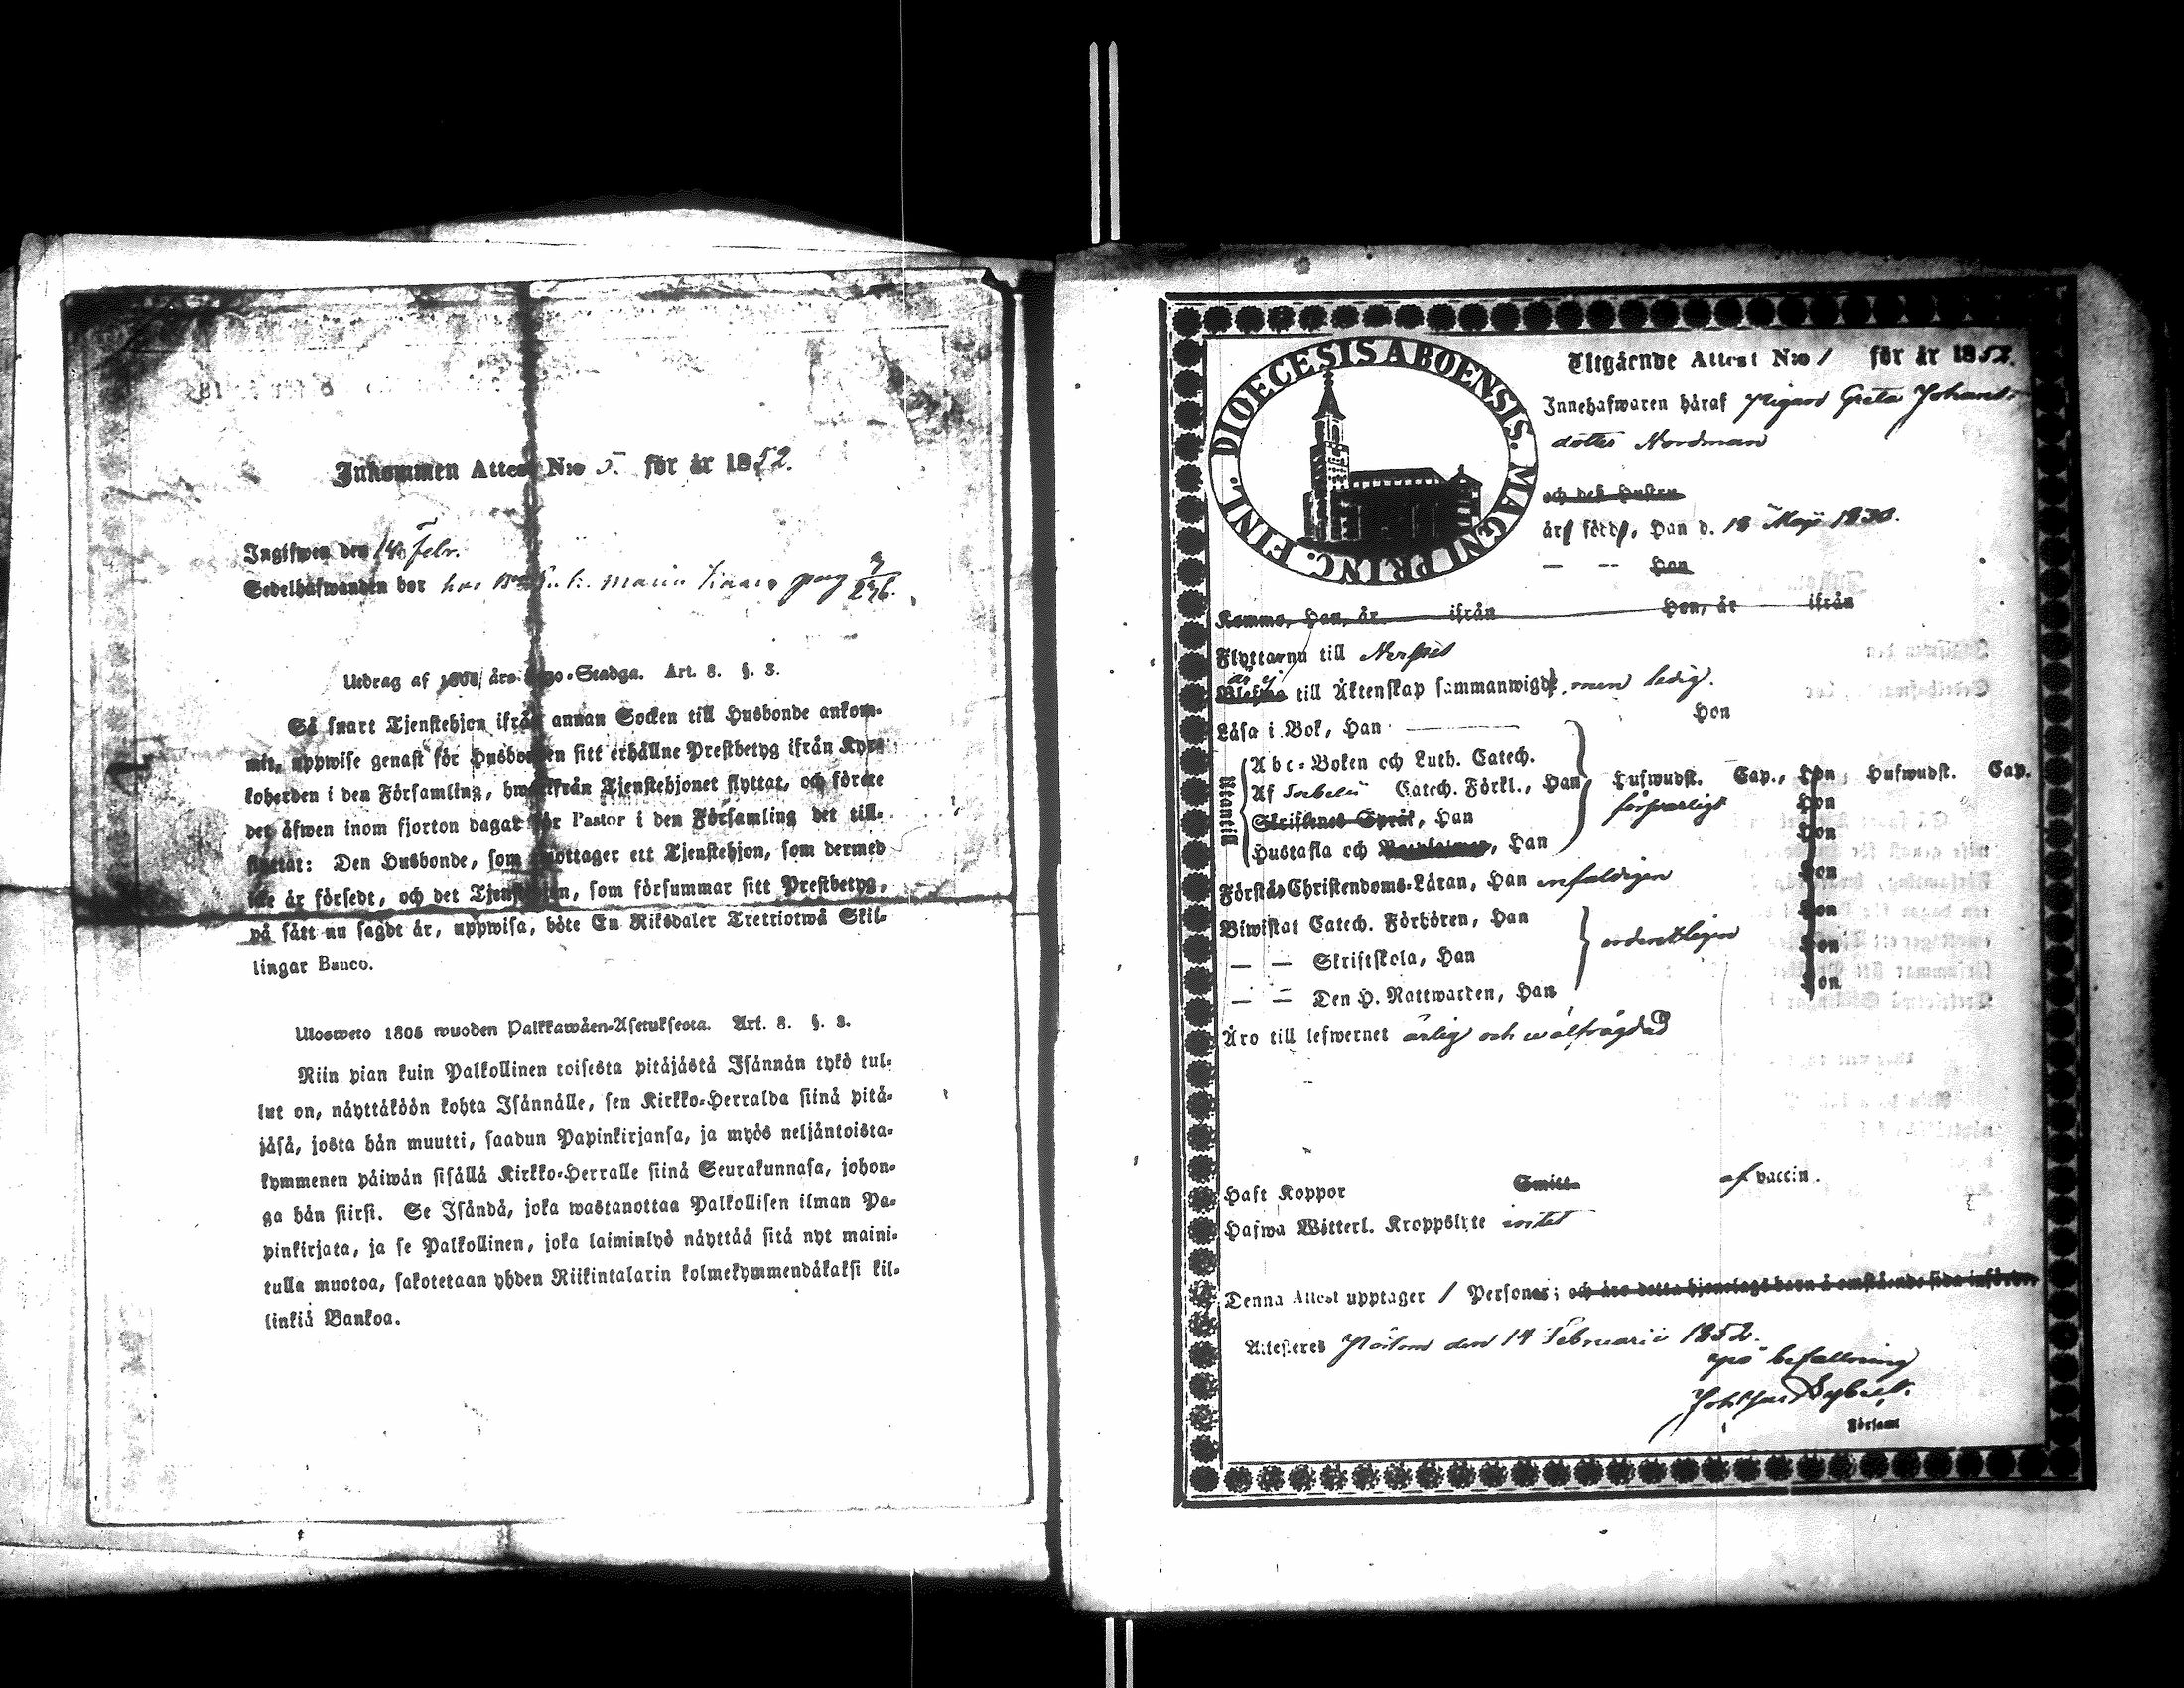 Inkommen Attest N:o 5. för år 1852.
Ingifwen den 14 Febr.
Sedelhafwanden bor hos Maria pag 3/236.
Utdrag af 1805 års Lego-Stadga. Art. 8. §. 3.
Så snart Tjenstehjon ifrån annan Socken till Husbonde ankom-
mit, uppwise genast för Husbonden sitt erhållne Prestbetyg ifrån Kyrk-
koherden i den Församling, hwarifrån Tjenstehjonet flyttat, och förete
det äfwen inom fjorton dagar för Pastor i den Församling det till-
flyttat: Den Husbonde, som emottager ett Tjenstehjon, som dermed
icke är försedt, och det Tjenstehjon, som försummar sitt Prestbetyg,
på sätt nu sagdt är, uppwisa, böte En Riksdaler Trettiotwå Skil-
lingar Banco.
Ulosweto 1805 wuoden Palkkawäen-Asetuksesta. Art. 8. §. 3.
Niin pian kuin Palkollinen toisesta pitäjästä Isännän tykö tul-
lut on, näyttäköön kohta Isännälle, sen Kirkko-Herralda siinä pitä-
jäsä, josta hän muutti, saadun Papinkirjansa, ja myös neljäntoista-
kymmenen päiwän sisällä Kirkko-Herralle siinä Seurakunnasa, johon-
ga hän siirsi. Se Isändä, joka wastanottaa Palkollisen ilman Pa-
pinkirjata, ja se Palkollinen, joka laiminlyö näyttää sitä nyt maini-
tulla muotoa, sakotetaan yhden Riikintalarin kolmekymmendäkaksi kil-
linkiä Bankoa.
DIOECESIS ABOENSIS. MAGNI PRINC. FINL.
Utgående Attest N:o 1 för år 1852.
Innehafwaren häraf Pigan Greta Johans-
dotter Nordman
och deß Hustru
är född, Han d. 18 Maji 1830.
— — Hon
Komne, Han, år ifrån Hon, år ifrån
Flyttar nu till Nerpes
är ej
Blefne till Äktenskap sammanwigd, men ledig.
Läsa i Bok, Han Hon
Utantill
Abc-Boken och Luth. Catech.
Af Catech. Förkl., Han Hufwudst. Cap., Hon Hufwudst. Cap.
försvarligt
Skriftenes Språk, Han Hon
Hustafla och Han Hon
Förstå Christendoms-Läran, Han enfaldigen Hon
Biwistat Catech. Förhören, Han ordentligen Hon
— — Skriftskola, Han Hon
— — Den H. Nattwarden, Han Hon
Äro till lefwernet ärlig och wälfrägdad
Haft Koppor Smitt. af vaccin.
Hafwa Witterl. Kroppslyte intet
Denna Attest upptager 1 Person; och äro detta hjonelags barn å omstående sida införde.
Attesteres den 14 Februarii 1852.
på befallning
Församl